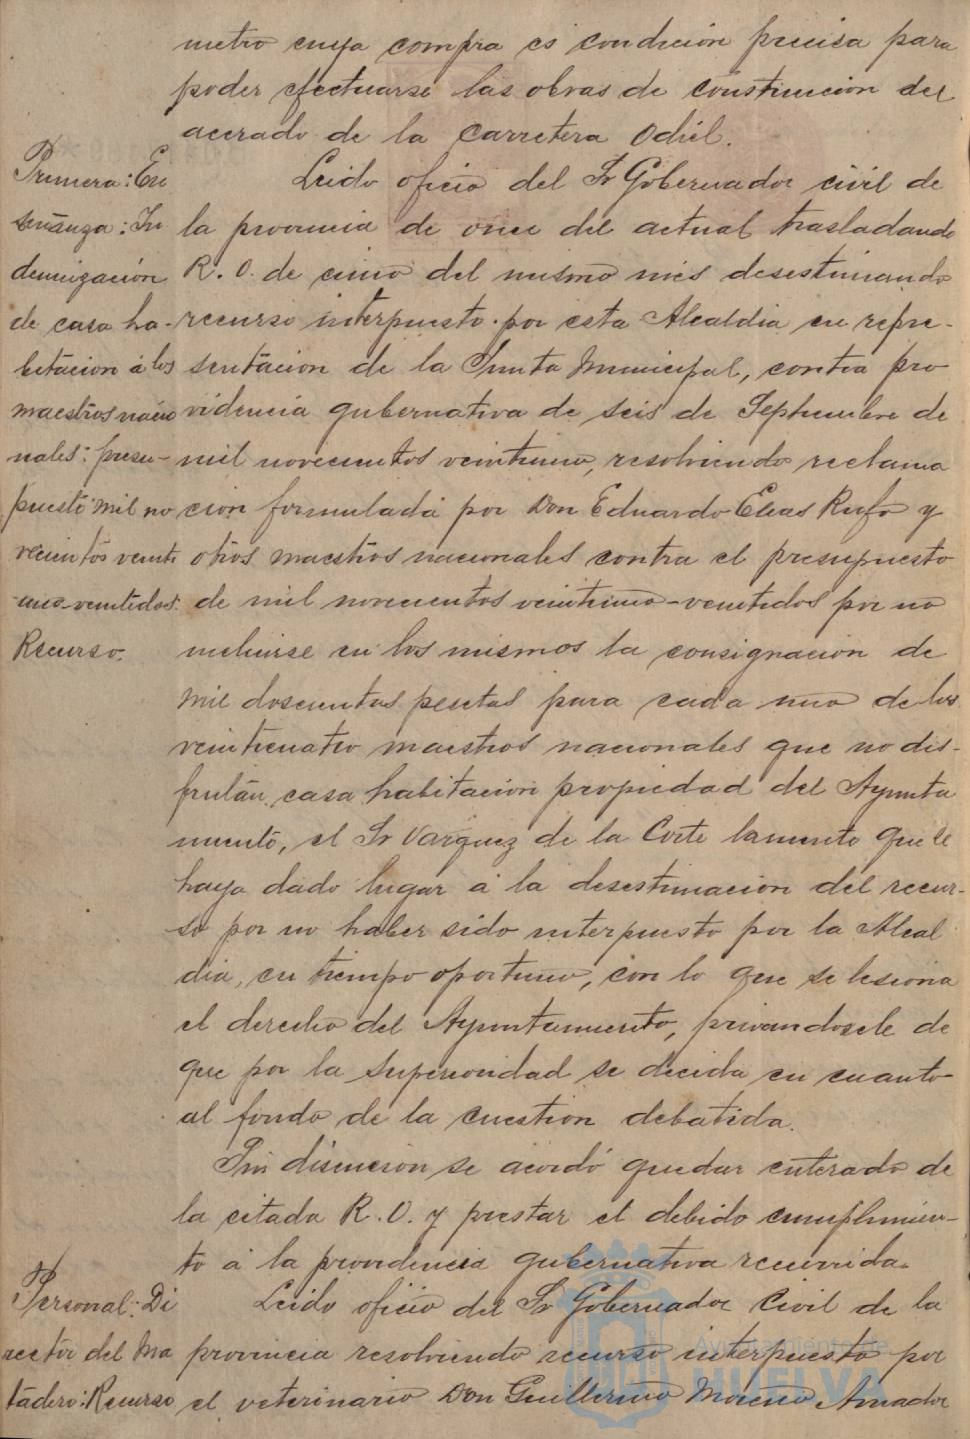 metro cuya compra es condición precisa para
poder efectuarse las obras de construccion del
acerado de la Carretera Odiel.
Primera: En
señanza: In
demnización
de casa ha-
bitacion á los
maestros nacio
nales: presu-
puesto mil no
vecientos veinti
uno-veintidos:
Recurso.
Leido oficio del Sr Gobernador civil de
la provincia de once del actual trasladando
R. O. de cinco del mismo mes desestimando
recurso interpuesto por esta Alcaldia en repre-
sentacion de la Junta Municipal, contra pro
videncia gubernativa de seis de Septiembre de
mil novecientos veintiuno, resolviendo reclama
cion formulada por Don Eduardo Elias Rufo y
otros maestros nacionales contra el presupuesto
de mil novecientos veintiuno-veintidos por no
incluirse en los mismos la consignacion de
mil doscientas pesetas para cada uno de los
veinticuatro maestros nacionales que no dis-
frutan casa habitacion propiedad del Ayunta
miento, el Sr Vazquez de la Corte lamento que se
haya dado lugar á la desestimacion del recur-
so por no haber sido interpuesto por la Alcal
dia, en tiempo oportuno, con lo que se lesiona
el derecho del Ayuntamiento, privandosele de
que por la Superioridad se decida en cuanto
al fondo de la cuestion debatida.
Sin discusion se acordó quedar enterado de
la citada R. O. y prestar el debido cumplimien-
to á la providencia gubernativa recurrida.
Personal: Di
rector del Ma
tadero: Recurso
Leido oficio del Sr Gobernador Civil de la
provincia resolviendo recurso interpuesto por
el veterinario Don Guillermo Moreno Amador
Ayuntamiento de
HUELVA